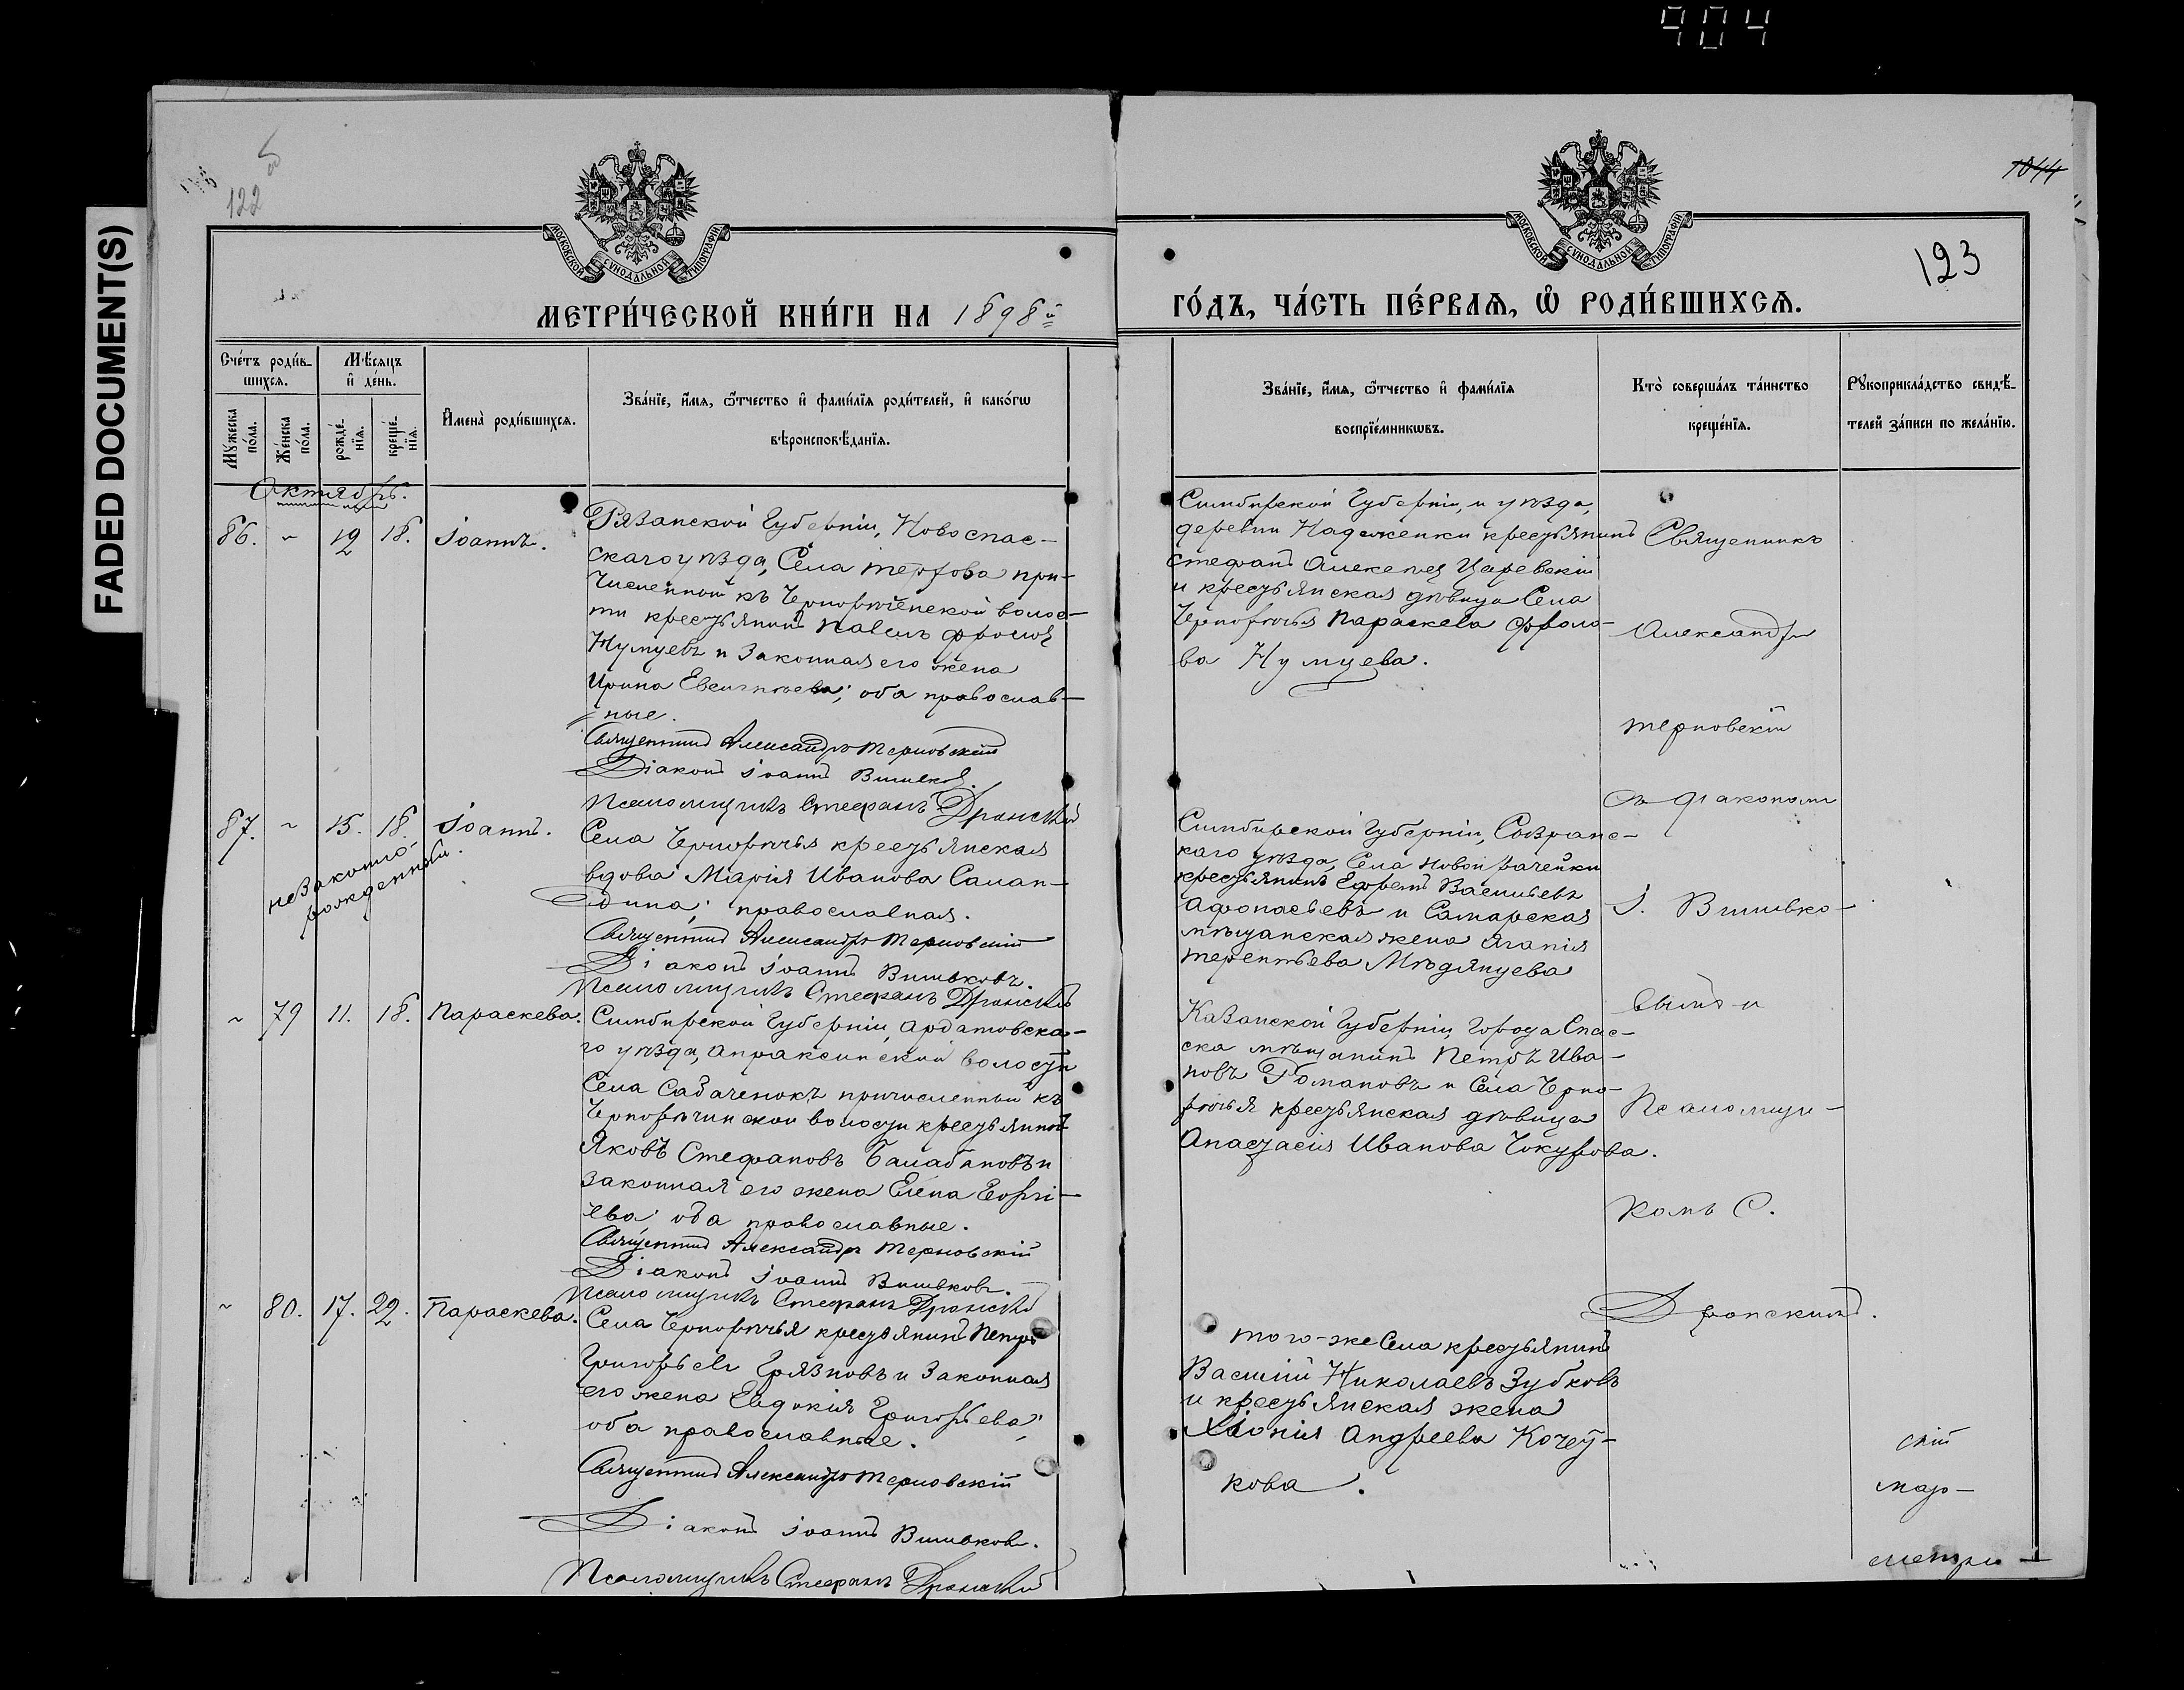 904
FADED DOCUMENT(S)
122
1044
123
МОСКОВСКОЙ СУНОДАЛЬНОЙ ТИПОГРАФІИ
МОСКОВСКОЙ СУНОДАЛЬНОЙ ТИПОГРАФІИ
МЕТРИ́ЧЕСКОЙ КНИ́ГИ НА 1898й
ГО́ДЪ, ЧА́СТЬ ПЕ́РВАѦ, Ѽ РОДИ́ВШИХСѦ.
Сче́тъ роди́в-
шихсѧ.
Мѣ́сѧцъ
и҆ де́нь.
Мꙋ́жеска
по́ла.
Же́нска
по́ла.
рожде́-
нїѧ.
креще́-
нїѧ.
И҆мена̀ роди́вшихсѧ.
Зва́нїе, и҆́мѧ, ѻ҆́тчество и҆ фами́лїѧ роди́телей, и҆ како́гѡ
вѣроисповѣ́данїѧ.
Зва́нїе, и҆́мѧ, ѻ҆́тчество и҆ фами́лїѧ
воспрїе́мникѡвъ.
Кто̀ соверша́лъ та́инство
креще́нїѧ.
Рꙋкоприкла́дство свидѣ́-
телей за́писи по жела́нїю.
Октябрь.
86. ~ 12 18. Іоаннъ.
Рязанской Губерніи, Новоспас-
скаго уѣзда, Села Терхова при-
численной къ Чернорѣченской волос-
ти крестьянинъ Павелъ Фролов
и законная его жена
Ирина Евсигнѣева; оба православ-
ные.
Священникъ Александръ Терновскій
Діаконъ Іоаннъ Вшивковъ.
Псаломщикъ Стефанъ Дронскій
Симбирской Губерніи, и уѣзда,
деревни Надеженки крестьянинъ
Стефанъ Алексѣев Царевскій
и крестьянская дѣвица Села
Чернорѣчья Параскева Фроло-
ва
87. ~ 15. 18. Іоаннъ.
незаконно-
рожденный.
Села Чернорѣчья крестьянская
вдова Марія Иванова Салан-
дина; православная.
Священникъ Александръ Терновскій
Діаконъ Іоаннъ Вшивковъ.
Псаломщикъ Стефанъ Дронскій
Симбирской Губерніи, Сызранс-
каго уѣзда, Села Новой Рачейки
крестьянинъ Ефремъ Васильевъ
Афонасьевъ и Самарская
мѣщанская жена Агапія
Терентьева Мѣдянцева
~ 79 11. 18. Параскева.
Симбирской Губерніи, Ардатовска-
го уѣзда, Апраксинской волости
Села Сабаченокъ причисленный къ
Чернорѣчинской волости крестьянинъ
Яковъ Стефановъ Балабановъ и
законная его жена Елена Георгі-
ева; оба православные.
Священникъ Александръ Терновскій
Діаконъ Іоаннъ Вшивковъ.
Псаломщикъ Стефанъ Дронскій
Казанской Губерніи, Города Спас-
ска мѣщанинъ Петръ Ива-
новъ Романовъ и Села Черно-
рѣчья крестьянская дѣвица
Анастасія Иванова Чокурова.
~ 80. 17. 22. Параскева.
Села Чернорѣчья крестьянинъ Петръ
Григорьевъ Грязновъ и законная
его жена Евдокія Григорьева;
оба православные.
Священникъ Александръ Терновскій
Діаконъ Іоаннъ Вшивковъ.
Псаломщикъ Стефанъ Дронскій
того-же Села крестьянинъ
Василій Николаевъ Зубковъ
и крестьянская жена
Хіонія Андреева Кочет-
кова.
Священникъ
Александръ
Терновскій
съ діакономъ
І. Вшивко-
вымъ и
Псаломщи-
комъ С.
Дронскимъ.